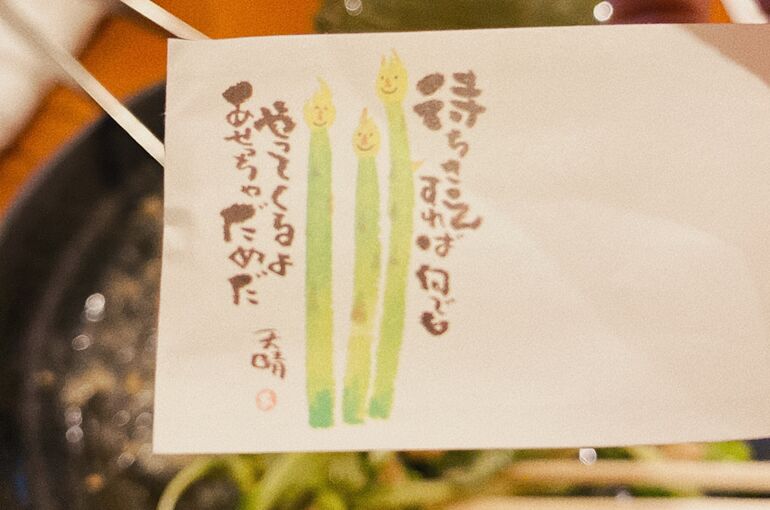 待ちさえ
すれば旬が
やってくるよ
あせっちゃだめだ
天晴